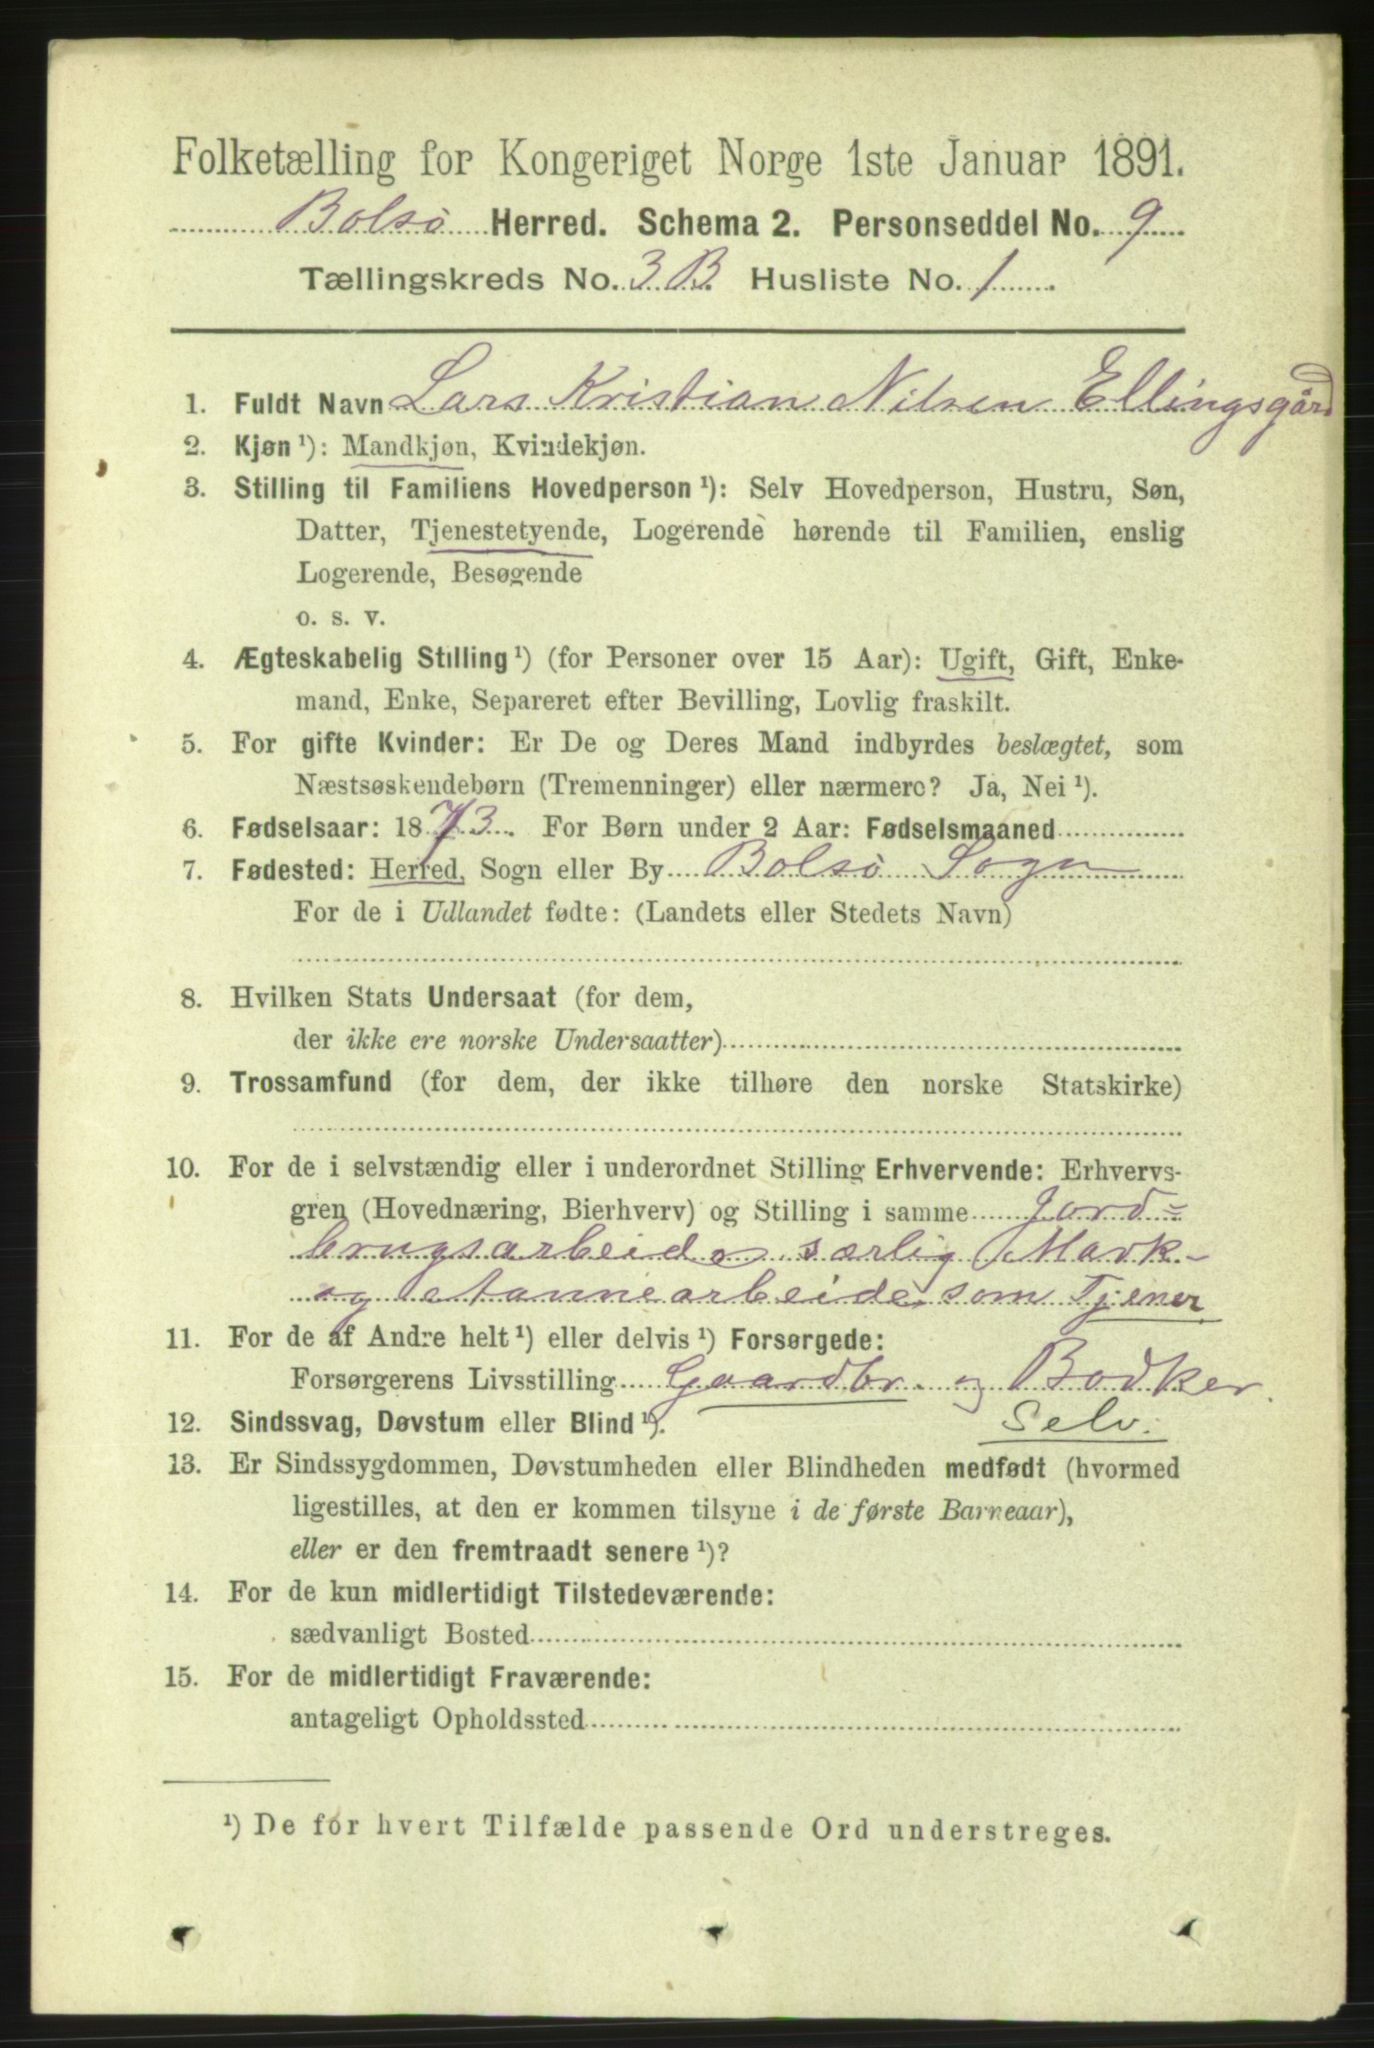 Folketælling for Kongeriget Norge 1ste Januar 1891.
Bolsø Herred. Schema 2. Personseddel No. 9
Tællingskreds No. 3 B. Husliste No. 1
1. Fuldt Navn Lars Kristian Nilsen Ellingsgård
2. Kjøn ¹): Mandkjøn, Kvindekjøn.
3. Stilling til Familiens Hovedperson ¹): Selv Hovedperson, Hustru, Søn,
Datter, Tjenestetyende, Logerende hørende til Familien, enslig
Logerende, Besøgende
o. s. v.
4. Ægteskabelig Stilling ¹) (for Personer over 15 Aar): Ugift, Gift, Enke-
mand, Enke, Separeret efter Bevilling, Lovlig fraskilt.
5. For gifte Kvinder: Er De og Deres Mand indbyrdes beslægtet, som
Næstsøskendebørn (Tremenninger) eller nærmere? Ja, Nei ¹).
6. Fødselsaar: 1873. For Børn under 2 Aar: Fødselsmaaned
7. Fødested: Herred, Sogn eller By Bolsø Sogn
For de i Udlandet fødte: (Landets eller Stedets Navn)
8. Hvilken Stats Undersaat (for dem,
der ikke ere norske Undersaatter)
9. Trossamfund (for dem, der ikke tilhøre den norske Statskirke)
10. For de i selvstændig eller i underordnet Stilling Erhvervende: Erhvervs-
gren (Hovednæring, Bierhverv) og Stilling i samme Jord=
brugsarbeide særlig Mark-
og tannearbeide som Tjener
11. For de af Andre helt ¹) eller delvis ¹) Forsørgede:
Forsørgerens Livsstilling Gaardbr. og Bødker.
12. Sindssvag, Døvstum eller Blind ¹). Selv.
13. Er Sindssygdommen, Døvstumheden eller Blindheden medfødt (hvormed
ligestilles, at den er kommen tilsyne i de første Barneaar),
eller er den fremtraadt senere ¹)?
14. For de kun midlertidigt Tilstedeværende:
sædvanligt Bosted
15. For de midlertidigt Fraværende:
antageligt Opholdssted
¹) De for hvert Tilfælde passende Ord understreges.